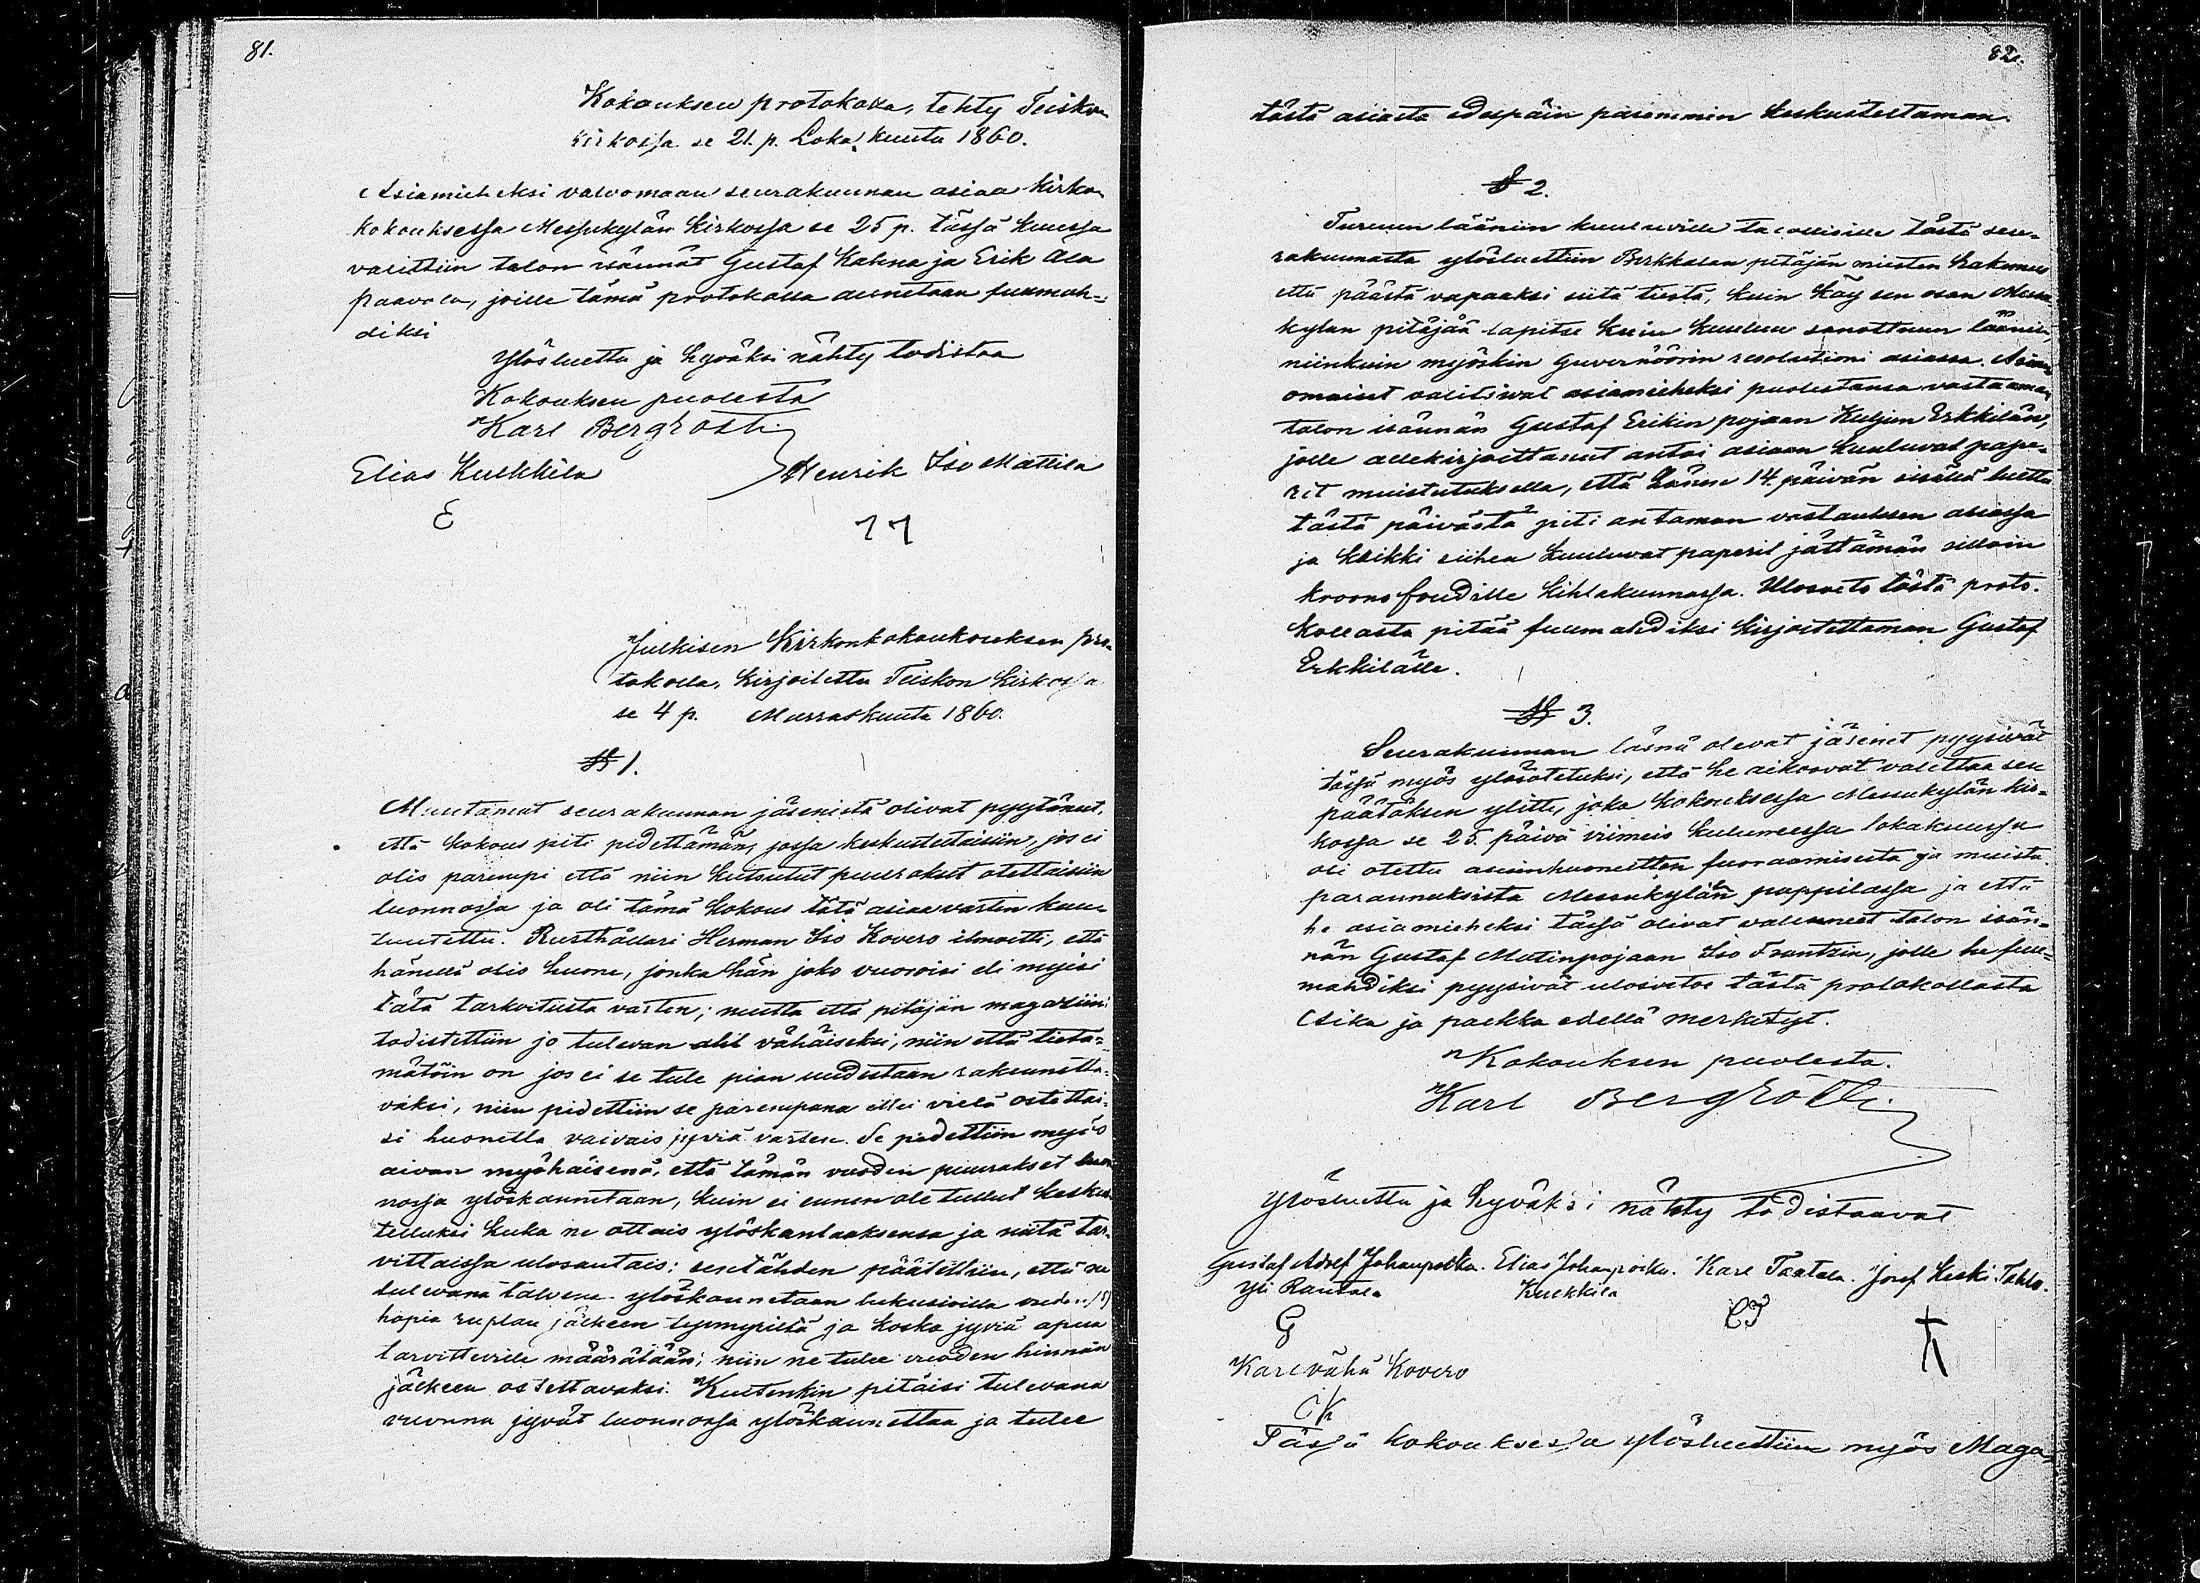 81.
Kokouksen protokolla, tehty Teiskon
kirkossa se 21. p. Loka kuuta 1860.
Asiamieheksi valvomaan seurakunnan asiaa kirkon
kokouksessa Messukylän kirkossa se 25 p. tässä kuussa
valittiin talon isännät Gustaf Kahna ja Erik Ala
Paavola, joille tämä protokolla annetaan fuumah-
diksi
Ylösluettu ja hyväksi nähty todistaa
Kokouksen puolesta
Karl Bergroth
Elias Kulkkila
Henrik Iso Mattila
E
Julkisen Kirkonkokoukouksen pro-
tokolla, kirjoitettu Teiskon kirkossa
se 4 p. Marraskuuta 1860.
§ 1.
Muutamat seurakunnan jäsenistä olivat pyytäneet,
että kokous piti pidettämän, jossa keskusteltaisiin, jos ei
olis parempi että niin kutsutut puurakset otettaisiin
luonnossa ja oli tämä kokous tätä asiaa varten kuu-
lutettu. Rusthållari Herman Iso Kovero ilmoitti, että
hänellä olis huone, jonka hän joko vuoroisi eli myisi
tätä tarkoitusta varten; mutta että pitäjän magasiini
todistettiin jo tulevan vähäiseksi, niin että tietä-
mätöin on jos ei se tule pian uudestaan rakennetta-
vaksi, niin pidettiin se parempana ettei vielä ostettai-
si huonetta vaivais jyviä varten. Se pidettiin myös
aivan myöhäisenä, että tämän vuoden puurakset luon-
nossa ylöskannetaan, kuin ei ennen ole tullut keskus-
telluksi kuka ne ottais ylöskantaaksensa ja niitä tar-
vittaissa ulosantais: sentähden päätettiin, että ne
tulevana talvena ylöskannetaan
hopia ruplan jälkeen tynnyriltä ja koska jyviä apua
tarvitteville määrätään; niin ne tulee vuoden hinnan
jälkeen ostettavaksi. Kuitenkin pitäisi tulevana
vuonna jyvät luonnossa ylöskannettaa ja tulee
82.
tästä asiasta edespäin paremmin keskusteltaman.
§ 2.
Turuun lääniin kuuluville talollisille tästä seu-
rakunnasta ylösluettiin Birkkalan pitäjän miesten hakemus
että päästä vapaaksi siitä tiestä, kuin käy sen osan Messu-
kylan pitäjää lapitse kuin kuuluu sanottuun lääniin,
niinkuin myöskin guvernöörin resolutioni asiassa. Asian-
omaiset valitsivat asiamieheksi puolestansa vastaaman
talon isännän Gustaf Erikin pojaan Kuljun Erkkilän,
jolle allekirjoittanut antoi asiaan kuuluvat pape-
rit muistutuksella, että hänen 14 päivän sisällä luettu
tästä päivästä piti antaman vastauksen asiassa
ja kaikki siihen kuuluvat paperit jättämän silloin
kroonofoudille kihlakunnassa. Ulosveto tästä proto-
kollasta pitää fuumahdiksi kirjoitettaman Gustaf
Erkkilälle.
§ 3.
Seurakunnan läsnä olevat jäsenet pyysivät
tässä myös ylösotetuksi, että he aikoovat valittaa sen
päätöksen ylitte, joka kokouksessa Messukylän kir-
kossa se 25. päivä viimeis kuluneessa lokakuussa
oli otettu asuinhuonetten fuoraamisesta ja muista
parannuksista Messukylän pappilassa ja että
he asiamieheksi tässä olivat valinneet talon isän-
nän Gustaf Matinpojaan Iso Frantsin, jolle he fuu-
mahdiksi pyysivät ulosvetos tästä protokollasta
Aika ja paikka edellä merkityt.
Kokouksen puolesta.
Karl Bergroth
Ylösluettu ja hyväksi nähty todistaavat
Gustaf Adolf Johanpoika. Elias Johanpoika. Karl Taatala. Josef Keski Tahlo.
Yli Rautala Kulkkila
G
Karl vähä Kovero
CK
Tässä kokouksessa ylösluettiin myös Maga-